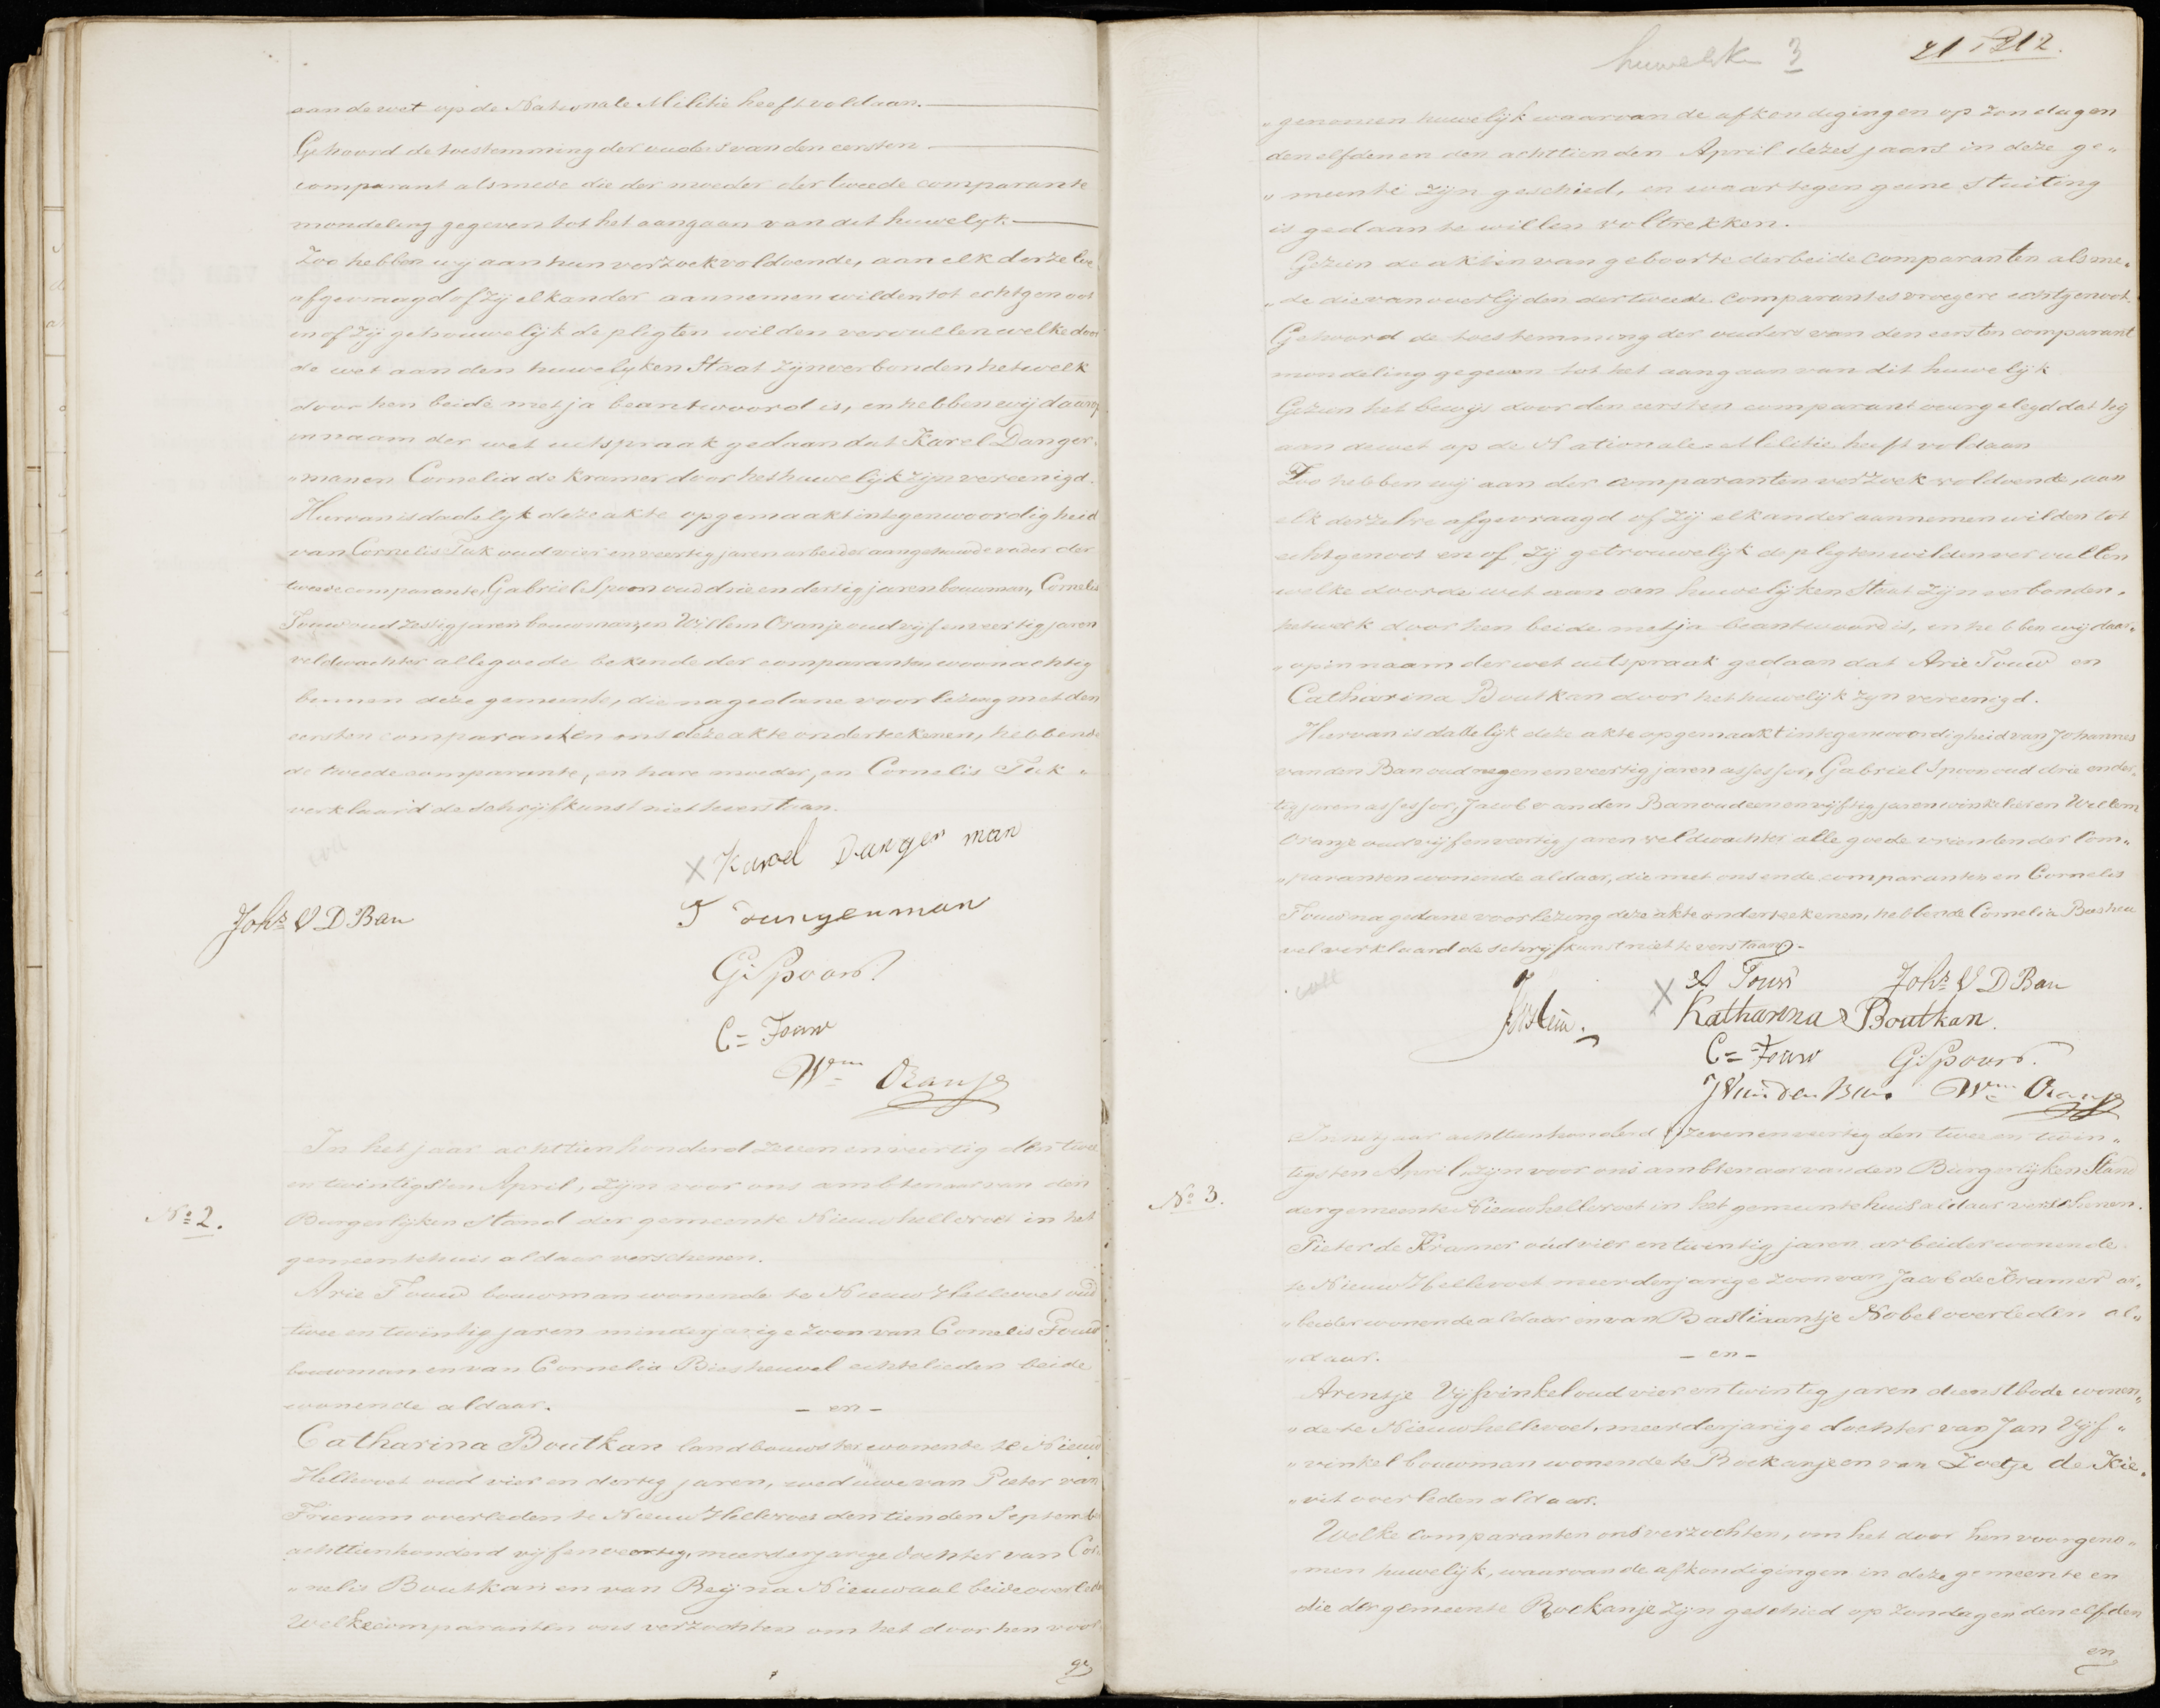 aan de wet op de Nationale Militie heeft voldaan.
Gehoord de toestemming der ouders van den eersten
comparant alsmede die der moeder der tweede comparante
mondeling gegeven tot het aangaan van dit huwelyk
Zoo hebben wij aan hun verzoek voldoende, aan elk derzelve
afgevraagd of zij elkander aannemen wilden tot echtgenoot
en of zij getrouwelijk de pligten wilden vervullen welke door
de wet aan den huwelyken Staat zijn verbonden hetwelk
door hen beide met ja beantwoord is, en hebben wij daarop
in naam der wet uitspraak gedaan dat Karel Danger„
„man en Cornelia de Kramer door het huwelijk zijn vereenigd.
Hiervan is dadelyk deze akte opgemaakt in tegenwoordigheid
van Cornelis Tuk oud vier en veertig jaren arbeider aangehuwde vader der
tweede comparante, Gabriel Spoon oud drie en dertig jaren bouwman, Cornelis
Touw oud zestig jaren bouwman, en Willem Oranje oud vijf en veertig jaren
veldwachter alle goede bekende der comparanten woonachtig
binnen deze gemeente, die na gedane voorlezing met den
eersten comparant en ons deze akte onderteekenen, hebbende
de tweede comparante, en hare moeder, en Cornelis Tuk
verklaard de schrijfkunst niet te verstaan.
X Karel Danger man
Johs V D Ban
T dangerman
G Spoon
C= Touw
Wm Oranje
In het jaar achttienhonderd zeven en veertig den twee
en twintigsten April, zijn voor ons ambtenaar van den
No 2.
Burgerlijken Stand der gemeente Nieuwhellevoet in het
gemeentehuis aldaar verschenen.
Arie Touw bouwman wonende te Nieuw Hellevoet oud
twee en twintig jaren minderjarige zoon van Cornelis Touw
bouwman en van Cornelia Biesheuvel echtelieden beide
wonende aldaar. – en –
Catharina Boutkan landbouwster wonende te Nieuw
Hellevoet oud vier en dertig jaren, weduwe van Pieter van
Trierum overleden te Nieuw Hellevoet den tienden September
achttienhonderd vijf en veertig, meerderjarige dochter van Cor
„nelis Boutkan en van Reijna Nieuwaal beide overleden
Welke comparanten ons verzochten om het door hen voor
ge
huwelijk 3
21 Pl 2.
„genomen huwelijk waarvan de afkondigingen op zondagen
den elfden en den achttienden April dezes jaars in deze ge„
„meente zijn geschied, en waartegen geene stuiting
is gedaan te willen voltrekken.
Gezien de akten van geboorte der beide comparanten alsme„
„de die van overlijden der tweede comparantes vroegere echtgenoot.
Gehoord de toestemming der ouders van den eersten comparant
mondeling gegeven tot het aangaan van dit huwelijk
Gezien het bewys door den eersten comparant overgelegd dat hij
aan de wet op de Nationale Militie heeft voldaan
Zoo hebben wij aan der comparanten verzoek voldoende, aan
elk derzelve afgevraagd of zij elkander aannemen wilden tot
echtgenoot en of zij getrouwelijk de pligten wilden vervullen
welke door de wet aan den huwelijken Staat zijn verbonden,
hetwelk door hen beide met ja beantwoord is, en hebben wij daar„
„op in naam der wet uitspraak gedaan dat Arie Touw en
Catharina Boutkan door het huwelijk zijn vereenigd.
Hiervan is dadelijk deze akte opgemaakt in tegenwoordigheid van Johannes
van den Ban oud negen en veertig jaren assessor, Gabriel Spoon oud drie en der„
tig jaren assessor, Jacob van den Ban oud een en vijftig jaren winkelier en Willem
Oranje oud vijf en veertig jaren veldwachter alle goede vrienden der Com„
„paranten wonende aldaar, die met ons en de comparanten en Cornelis
Touw na gedane voorlezing deze akte onderteekenen, hebbende Cornelia Biesheu
vel verklaard de schrijfkunst niet te verstaan.
X A Touw Johs V D Ban
Katharina Boutkan.
C= Touw G Spoon.
J Van den Ban. Wm Oranje
In het jaar achttienhonderd zeven en veertig den twee en twin„
tigsten April zijn voor ons ambtenaar van den Burgerlijken Stand
No 3.
der gemeente Nieuwhellevoet in het gemeentehuis aldaar verschenen.
Pieter de Kramer oud vier en twintig jaren arbeider wonende
te Nieuw Hellevoet meerderjarige zoon van Jacob de Kramer ar„
„beider wonende aldaar en van Bastiaantje Nobel overleden al„
„daar. – en –
Arentje Vijfvinkel oud vier en twintig jaren dienstbode wonen„
„de te Nieuwhellevoet, meerderjarige dochter van Jan Vijf„
„vinkel bouwman wonende te Rockanje en van Zoetje de Kie„
„vit overleden aldaar.
Welke comparanten ons verzochten, om het door hen voorgeno„
men huwelijk, waarvan de afkondigingen in deze gemeente en
die der gemeente Rockanje zijn geschied op zondagen den elfden
en